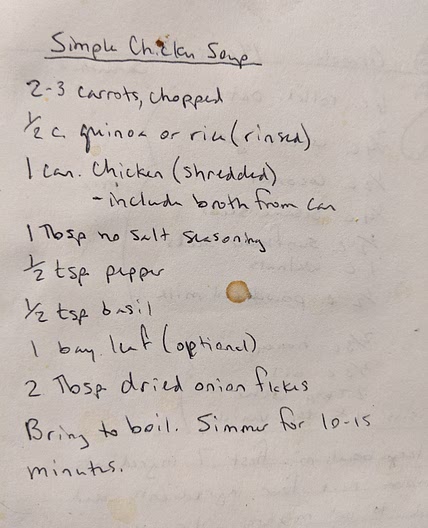 Simple Chicken Soup
2-3 carrots, chopped
1/2 c. quinoa or rice (rinsed)
1 can. Chicken (shredded)
- include broth from can
1 Tbsp no salt seasoning
1/2 tsp pepper
1/2 tsp basil
1 bay leaf (optional)
2 Tbsp dried onion flakes
Bring to boil. Simmer for 10-15
minutes.